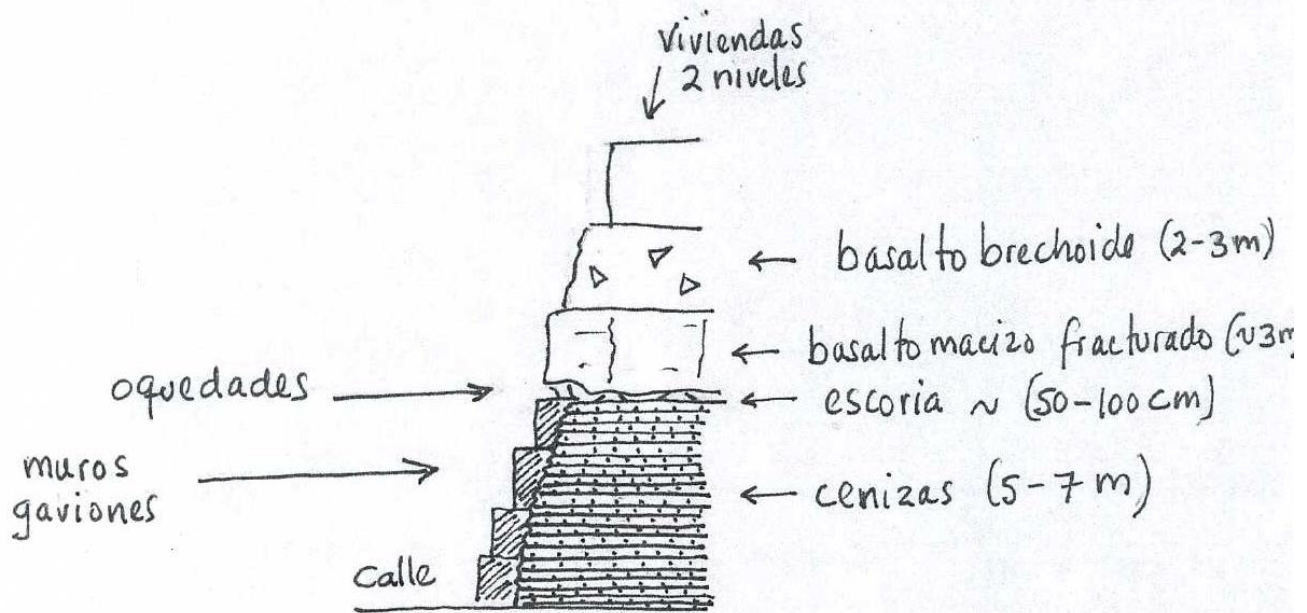 viviendas
2 niveles
basalto brechoide (2-3m)
basalto macizo fracturado (~3m
oquedades
escoria ~ (50-100cm)
muros
gaviones
cenizas (5-7m)
calle